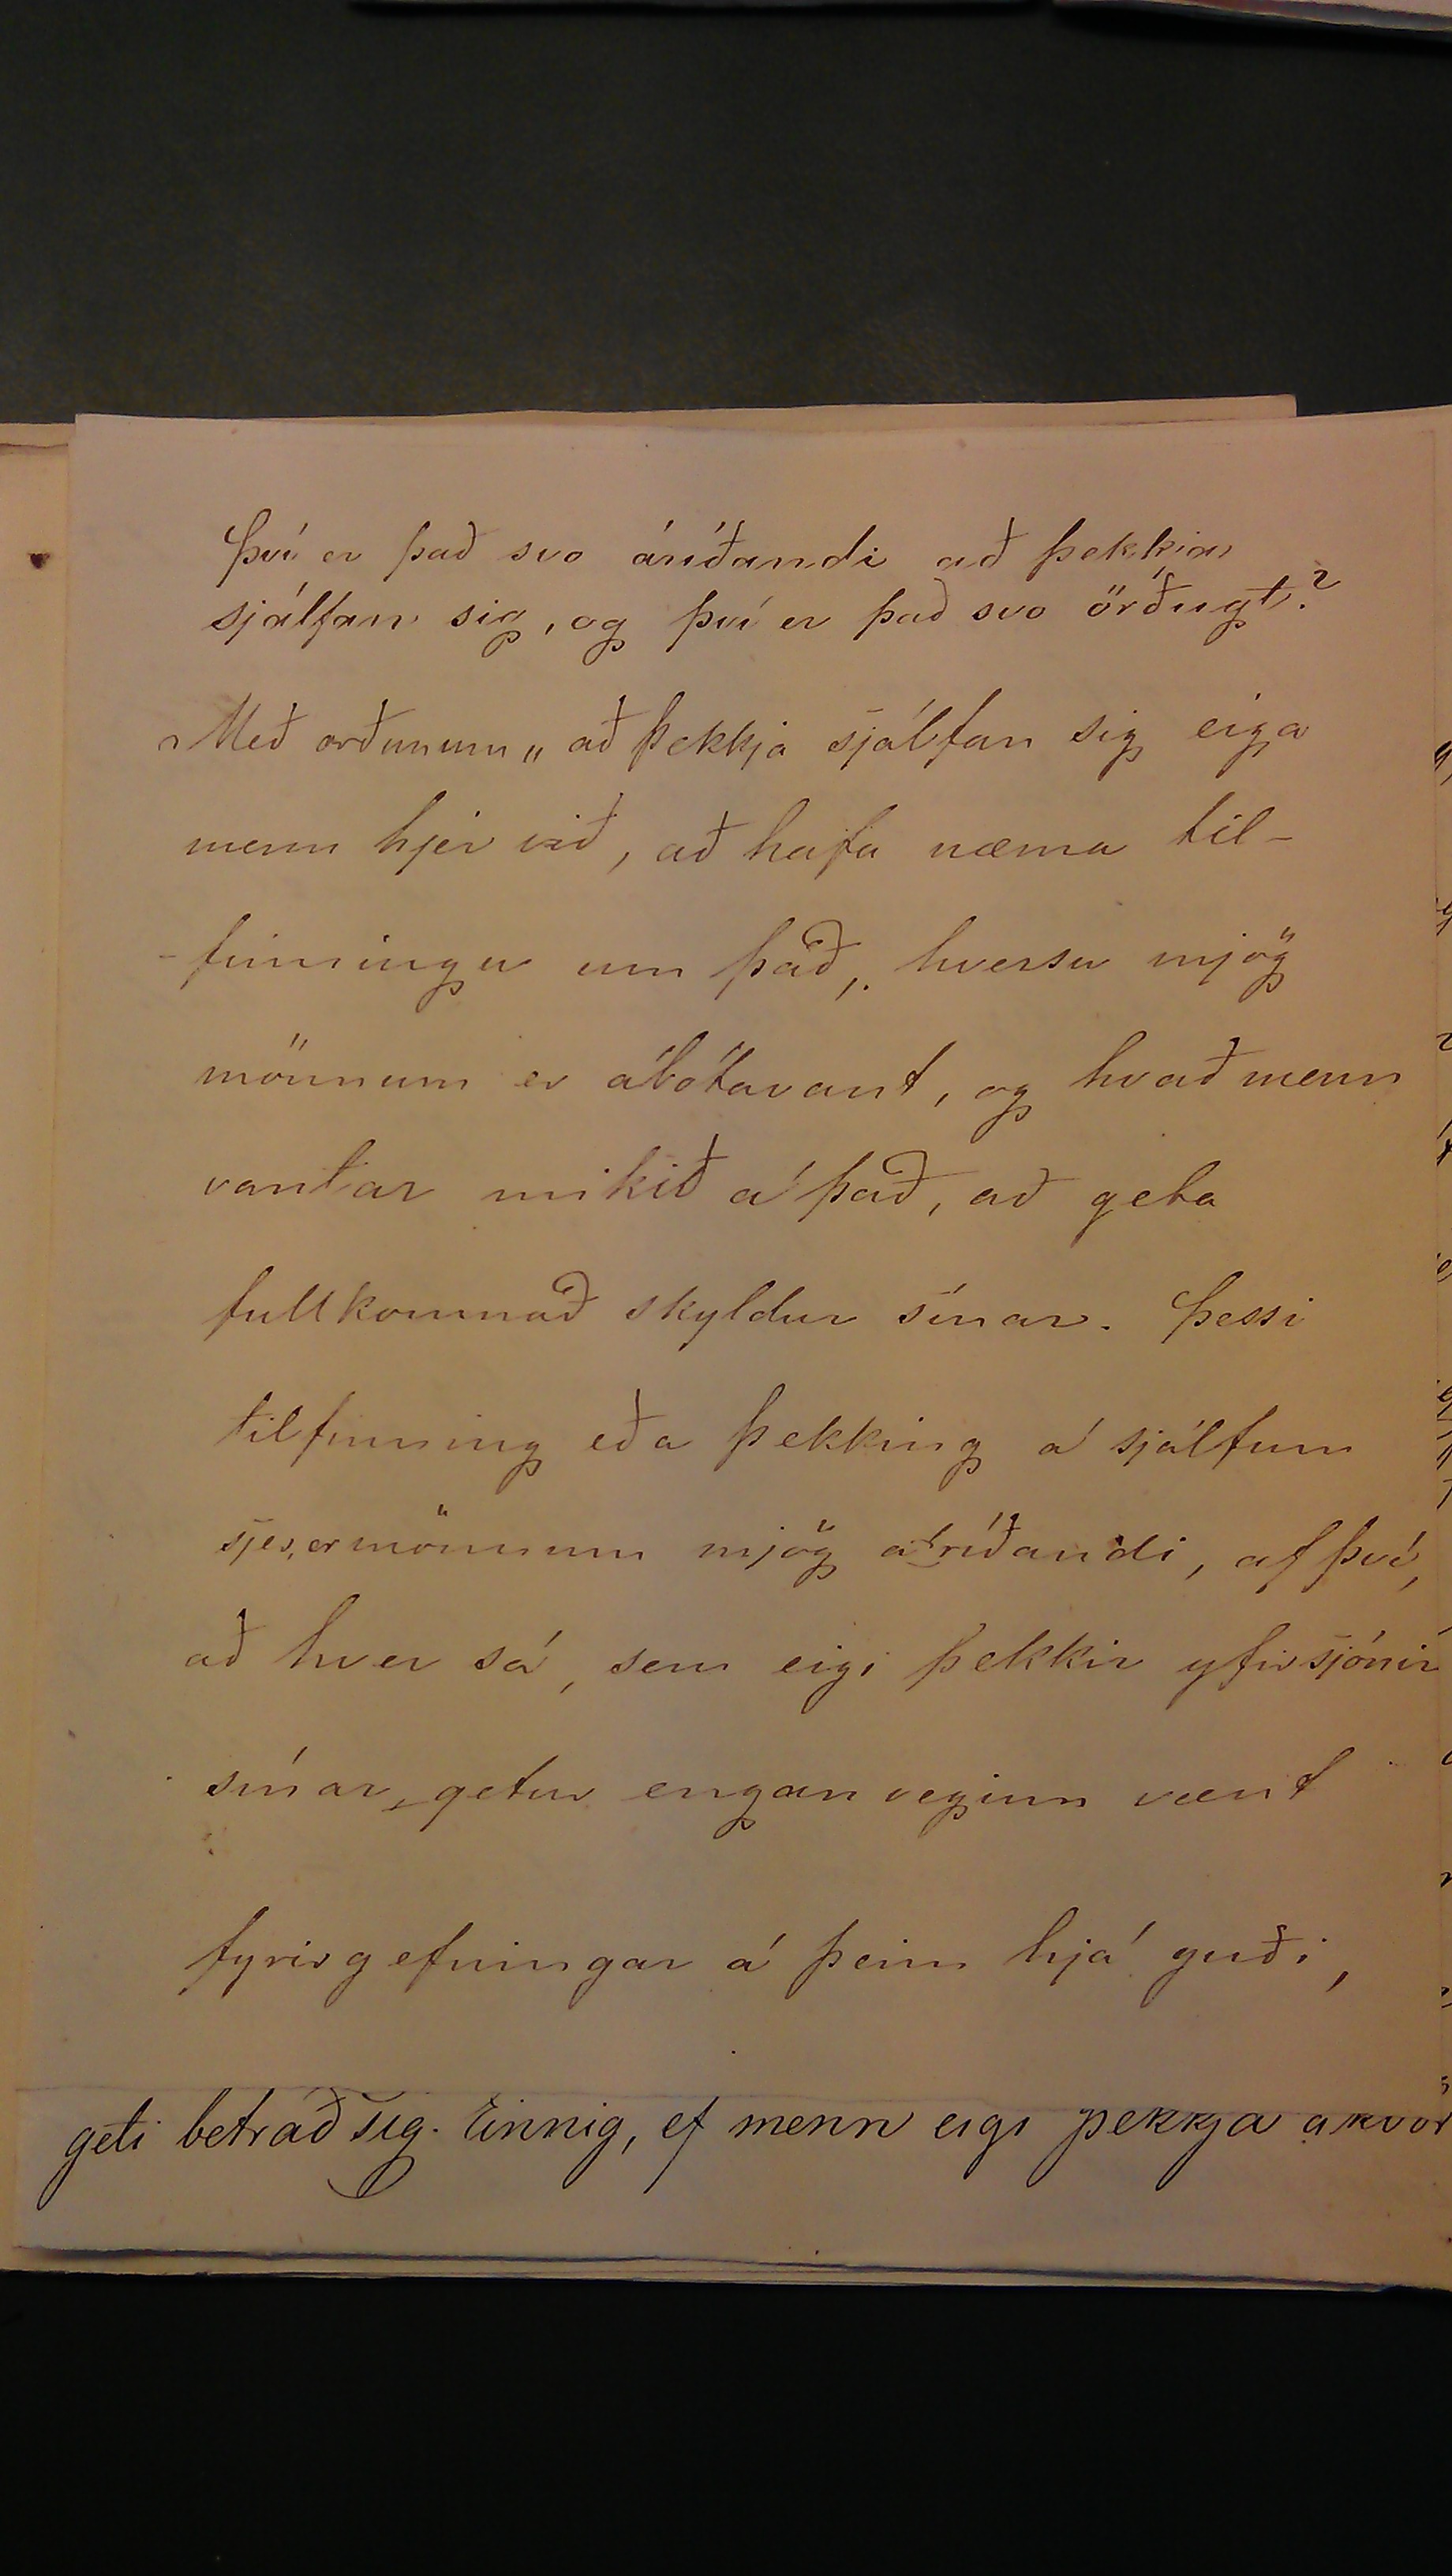 Því er það svo áríðandi að þekkja
sjálfan sig, og því er það svo örðugt?
Með orðunum „ að þekkja sjálfan sig eiga
menn hjer við, að hafa næma til-
-finningu um það, hversu mjög
mönnum er ábótavant, og hvað menn
vantar mikið á það, að geta
fullkomnað skyldur sínar. Þessi
tilfinning eða þekking á sjálfum
sjer, er mönnum mjög áríðandi, af því,
að hver sá, sem eigi þekkir yfirsjónir
sínar, getur enganveginn vænt
fyrirgefningar á þeim hjá guði,
geti betrað sig. Einnig, ef menn eigi þekkja